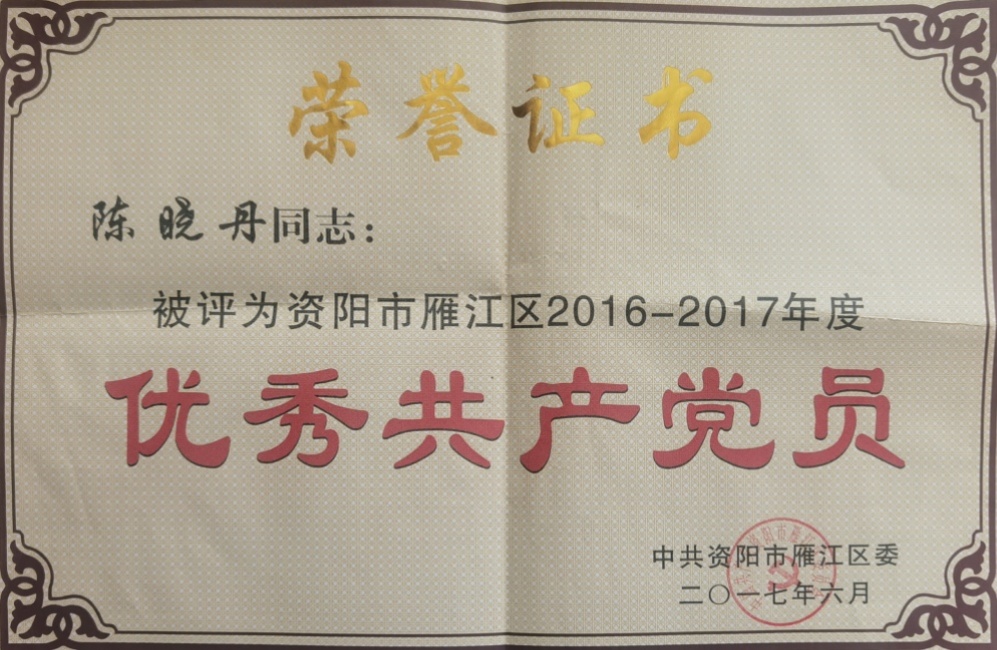 荣誉证书
陈晓丹同志：
被评为资阳市雁江区2016-2017年度
优秀共产党员
中共资阳市雁江区委
二〇一七年六月